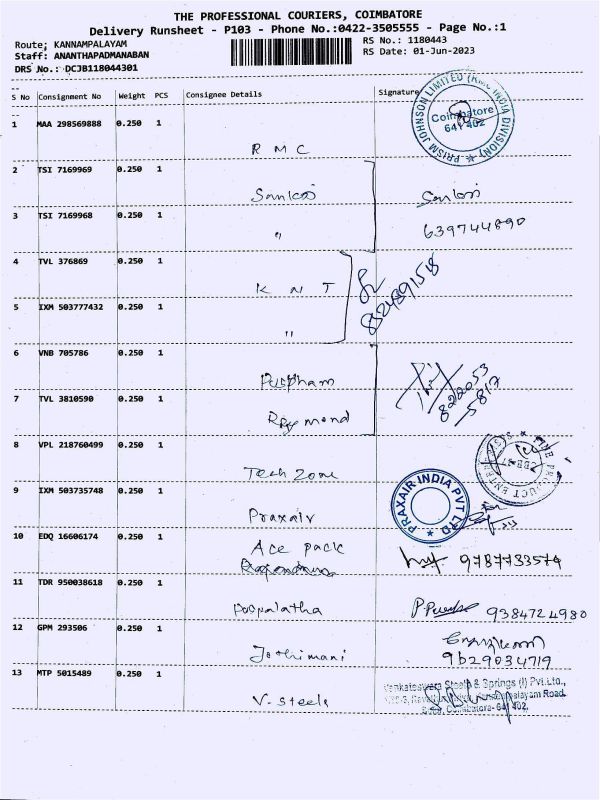 THE PROFESSIONAL COURIERS, COIMBATORE
Delivery Runsheet - P103 - Phone No.:0422-3505555 - Page No.:1
Route; KANNAMPALAYAM
RS No.: 1180443
Staff: ANANTHAPADMANABAN
RS Date: 01-Jun-2023
DRS No.: DCJB118044301
S No Consignment No Weight PCS Consignee Details Signature
1 MAA 298569888 0.250 1 RMC
PRISM JOHNSON LIMITED (RMC INDIA DIVISION)
Coimbatore
641 402
2 TSI 7169969 0.250 1
3 TSI 7169968 0.250 1 "
639744890
4 TVL 376869 0.250 1 KNT
5 IXM 503777432 0.250 1 "
6 VNB 705786 0.250 1
822053
5817
7 TVL 3810590 0.250 1 Raymond
8 VPL 218760499 0.250 1 Tech Zone
9 IXM 503735748 0.250 1 Praxair
PRAXAIR INDIA PVT LTD
10 EDQ 16606174 0.250 1 Ace pack
9787733574
11 TDR 950038618 0.250 1 Poopalatha
9384724980
12 GPM 293506 0.250 1 Jothimani
9629034719
13 MTP 5015489 0.250 1 V. steels
Venkateswara Steels & Springs (I) Pvt.Ltd.,
Kannampalayam Road,
Coimbatore- 641 402.